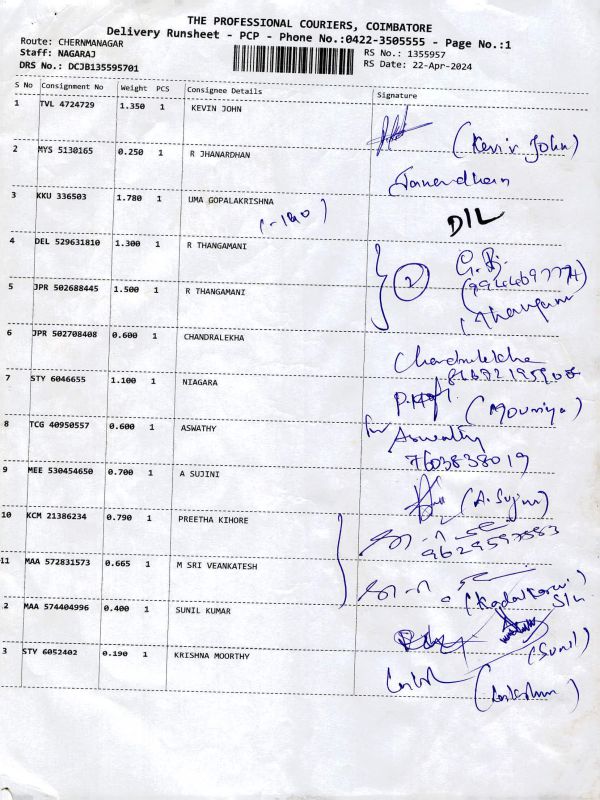 THE PROFESSIONAL COURIERS, COIMBATORE
Delivery Runsheet - PCP - Phone No.:0422-3505555 - Page No.:1
Route: CHERNMANAGAR
Staff: NAGARAJ
DRS No.: DCJB135595701
RS No.: 1355957
RS Date: 22-Apr-2024
S No Consignment No Weight PCS Consignee Details Signature
1 TVL 4724729 1.350 1 KEVIN JOHN (Kevin John)
2 MYS 5130165 0.250 1 R JHANARDHAN Janardhan
3 KKU 336503 1.780 1 UMA GOPALAKRISHNA D/L
(-190)
4 DEL 529631810 1.300 1 R THANGAMANI 2
5 JPR 502688445 1.500 1 R THANGAMANI
6 JPR 502708408 0.600 1 CHANDRALEKHA Chandralekha
7 STY 6046655 1.100 1 NIAGARA (Mouniya)
8 TCG 40950557 0.600 1 ASWATHY for Aswathy
7603838019
9 MEE 530454650 0.700 1 A SUJINI (A. Sujini)
10 KCM 21386234 0.790 1 PREETHA KIHORE
9629597583
11 MAA 572831573 0.665 1 M SRI VEANKATESH
2 MAA 574404996 0.400 1 SUNIL KUMAR (Sunil)
3 STY 6052402 0.190 1 KRISHNA MOORTHY